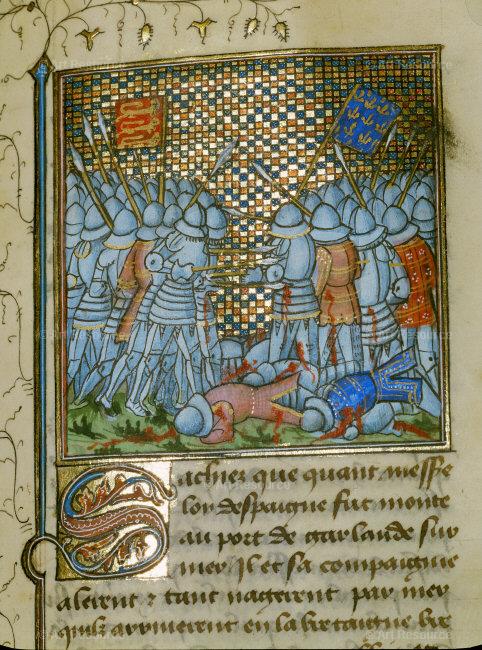 Sachiez que quant messire
loys despaigne fut monte
au port de garlande sur
mer il et sa compaignie
alerent & tant nagerent par mer
quilz arriverent en la bretaigne bre
© Art Resource